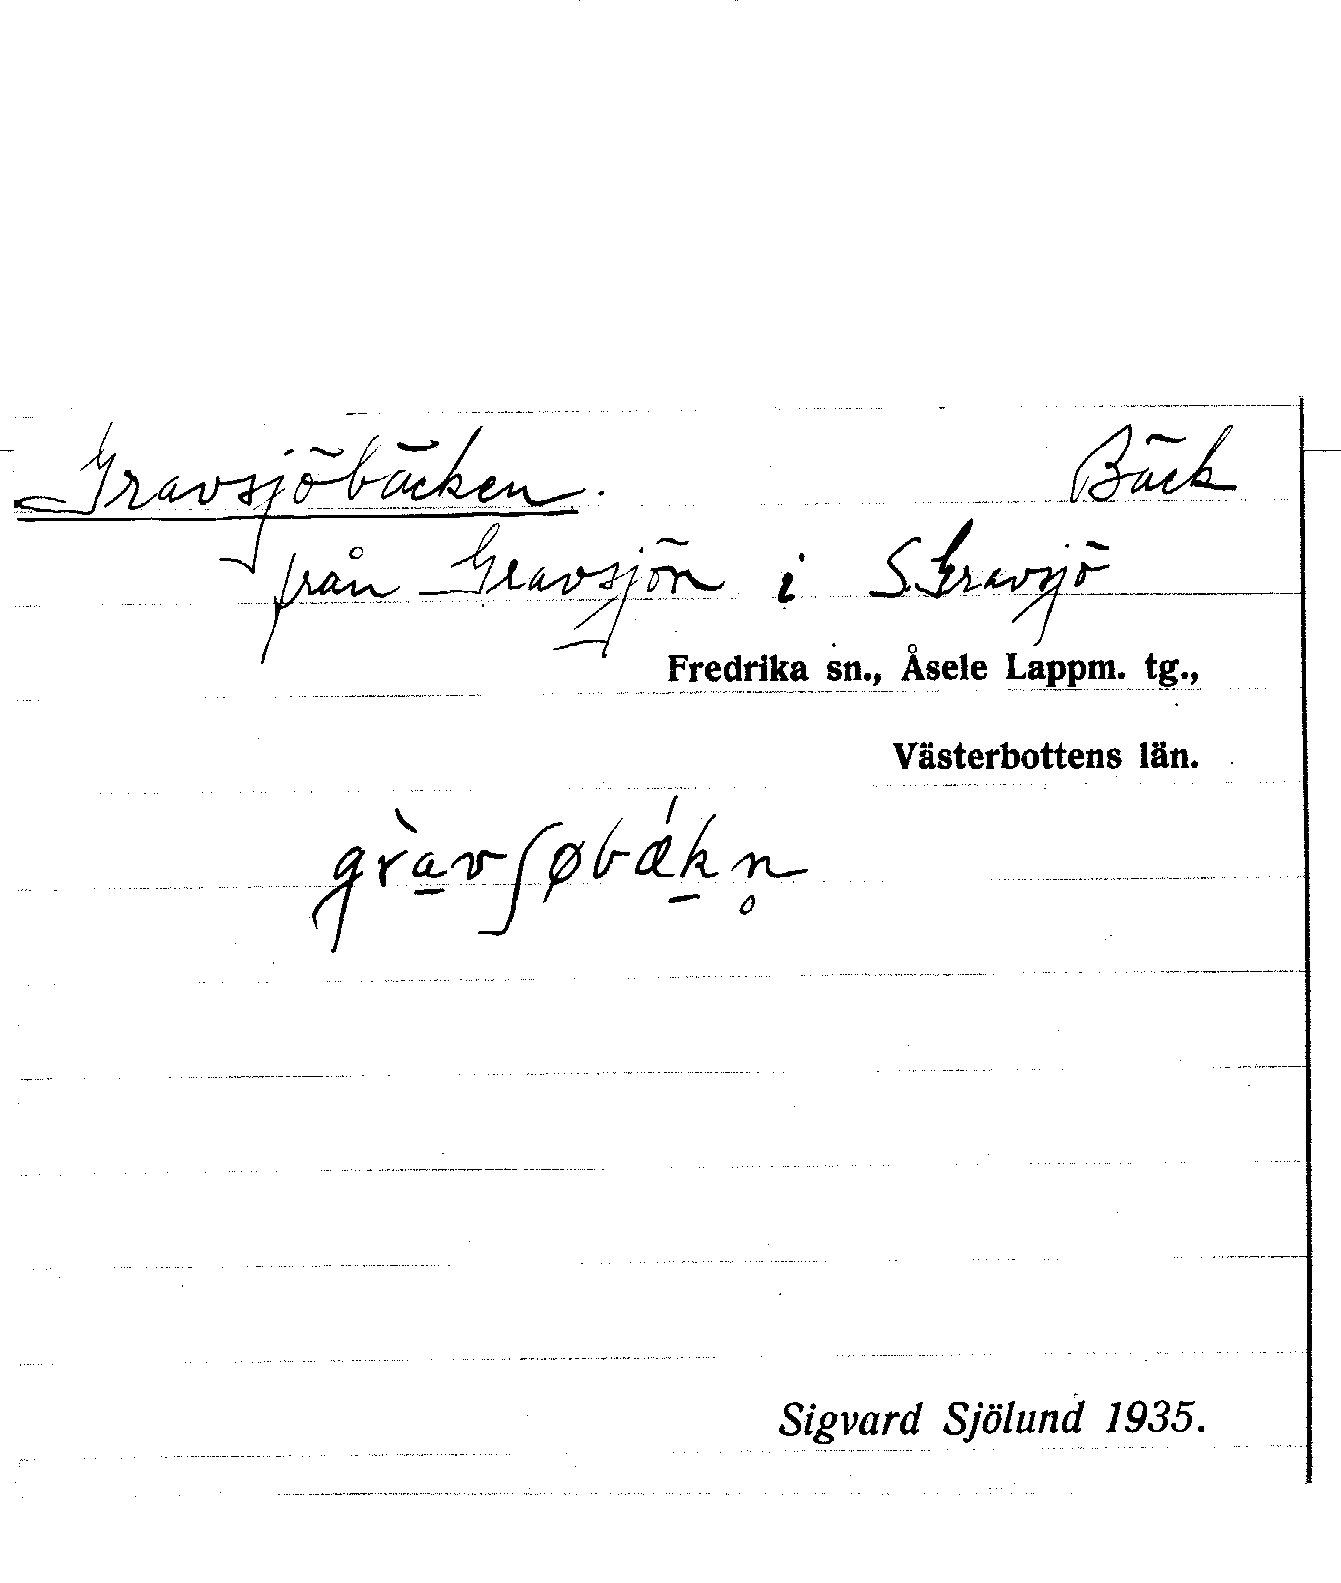 Gravsjöbäcken. Bäck
från Gravsjön i S. Gravsjö
Fredrika sn., Åsele Lappm. tg.,
Västerbottens län.
grà̱vʃøbǽḵn̥
Sigvard Sjölund 1935.